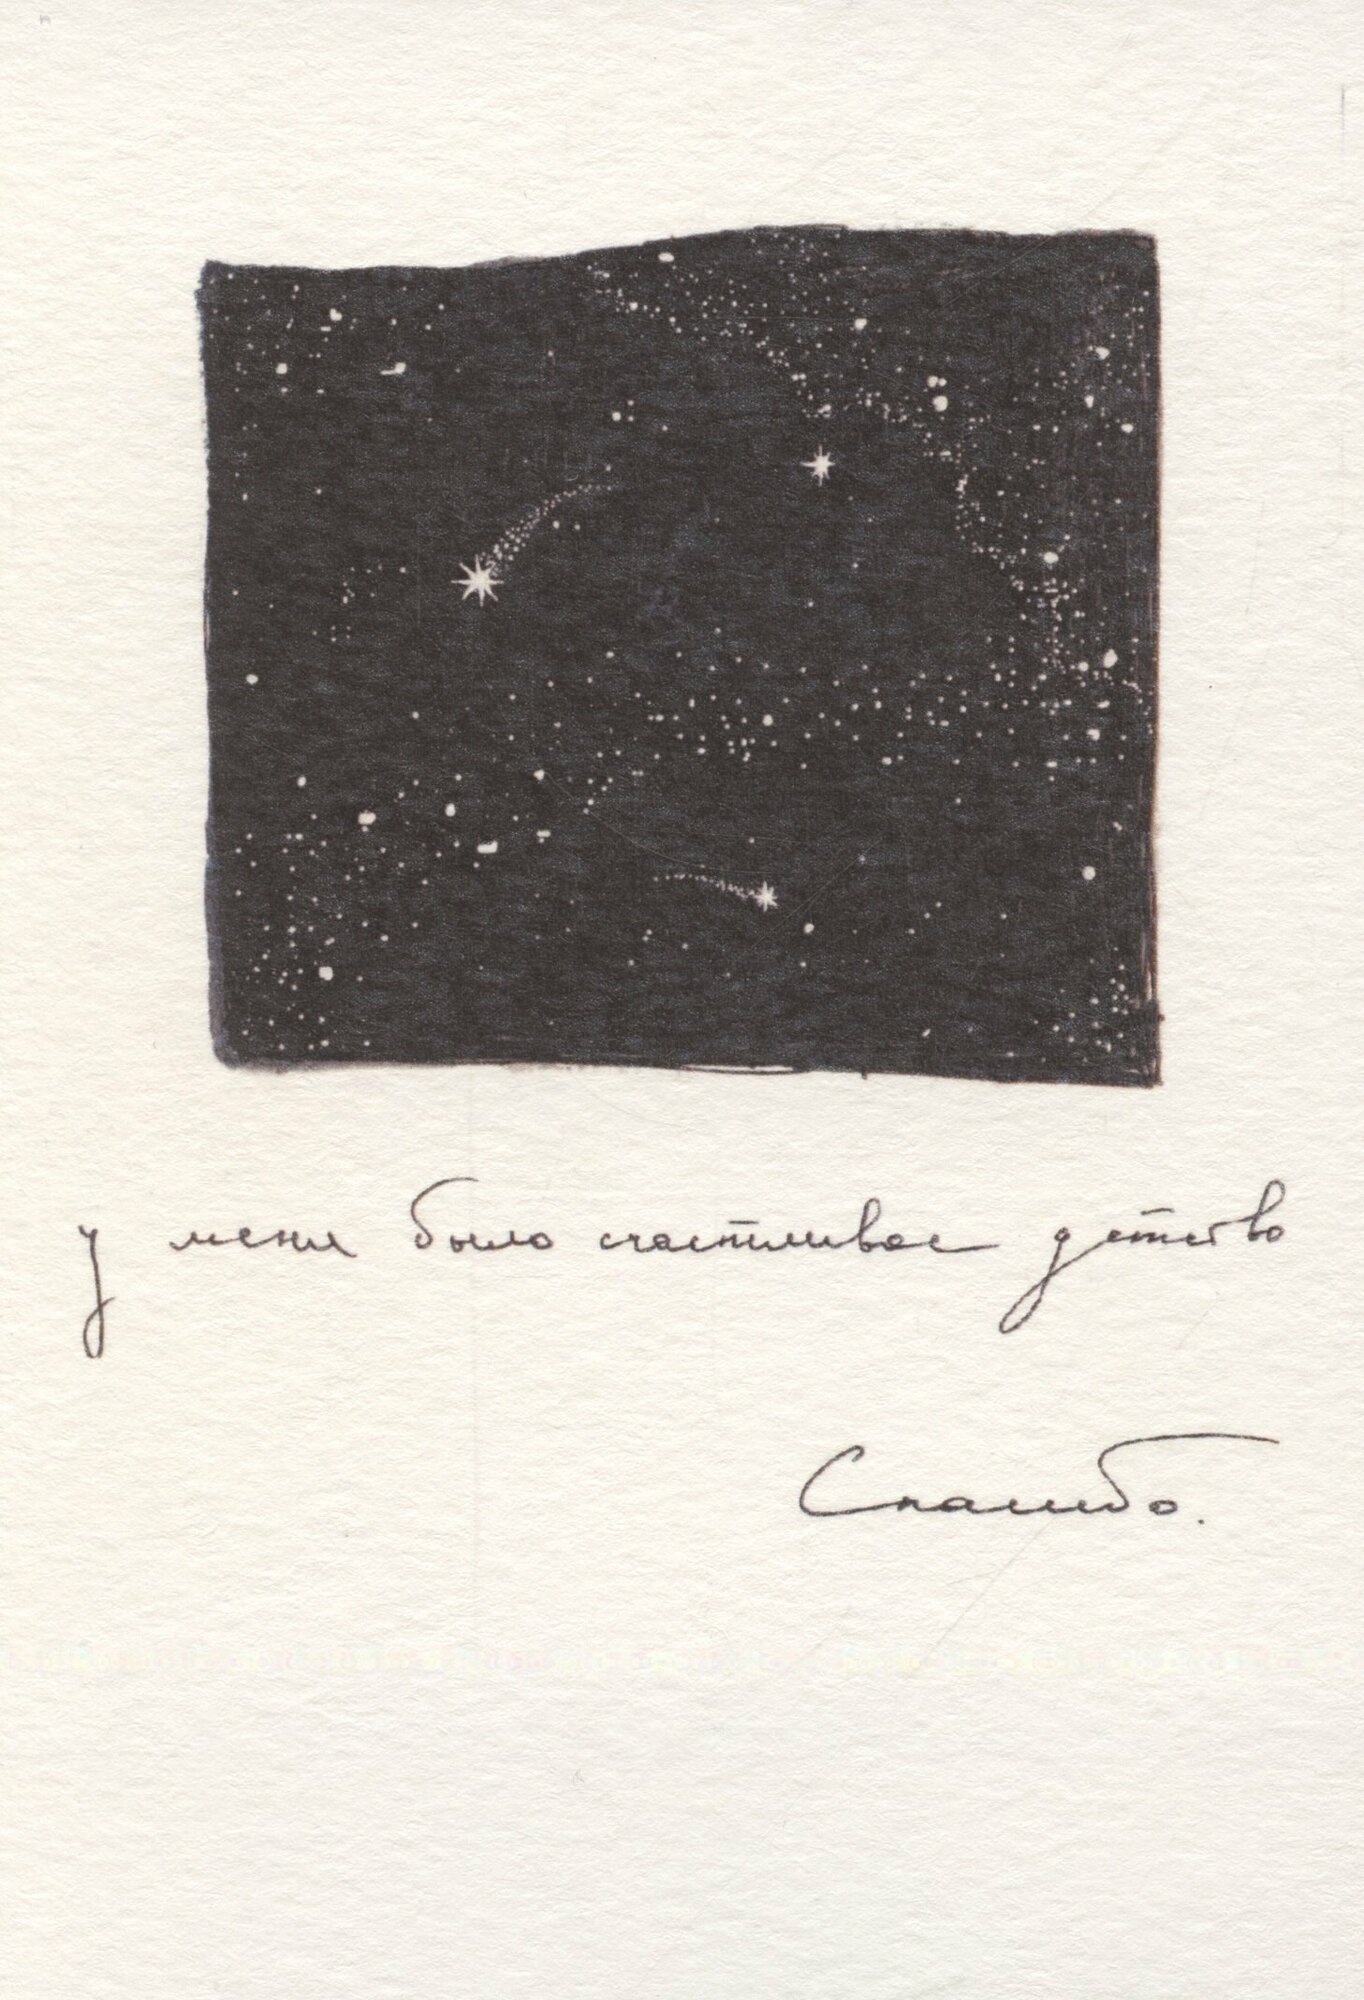 у меня было счастливое детство
Спасибо.